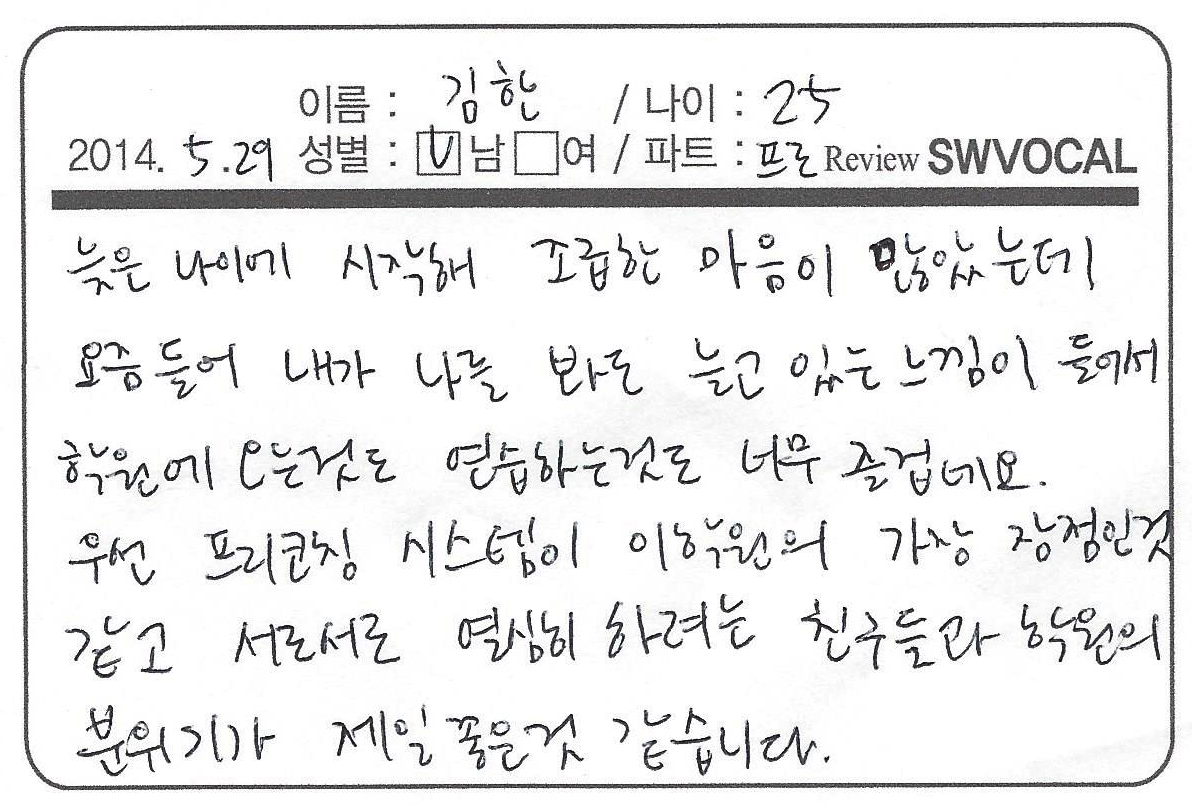 이름 : 김한 / 나이 : 25
2014. 5.29 성별 : V남 여 / 파트 : 프로 Review SWVOCAL
늦은 나이에 시작해 조급한 마음이 많았는데
요즘들어 내가 나를 봐도 늘고 있는 느낌이 들어서
학원에 오는것도 연습하는것도 너무 즐겁네요.
우선 프리코칭 시스템이 이학원의 가장 장점인것
같고 서로서로 열심히 하려는 친구들과 학원의
분위기가 제일 좋은것 같습니다.